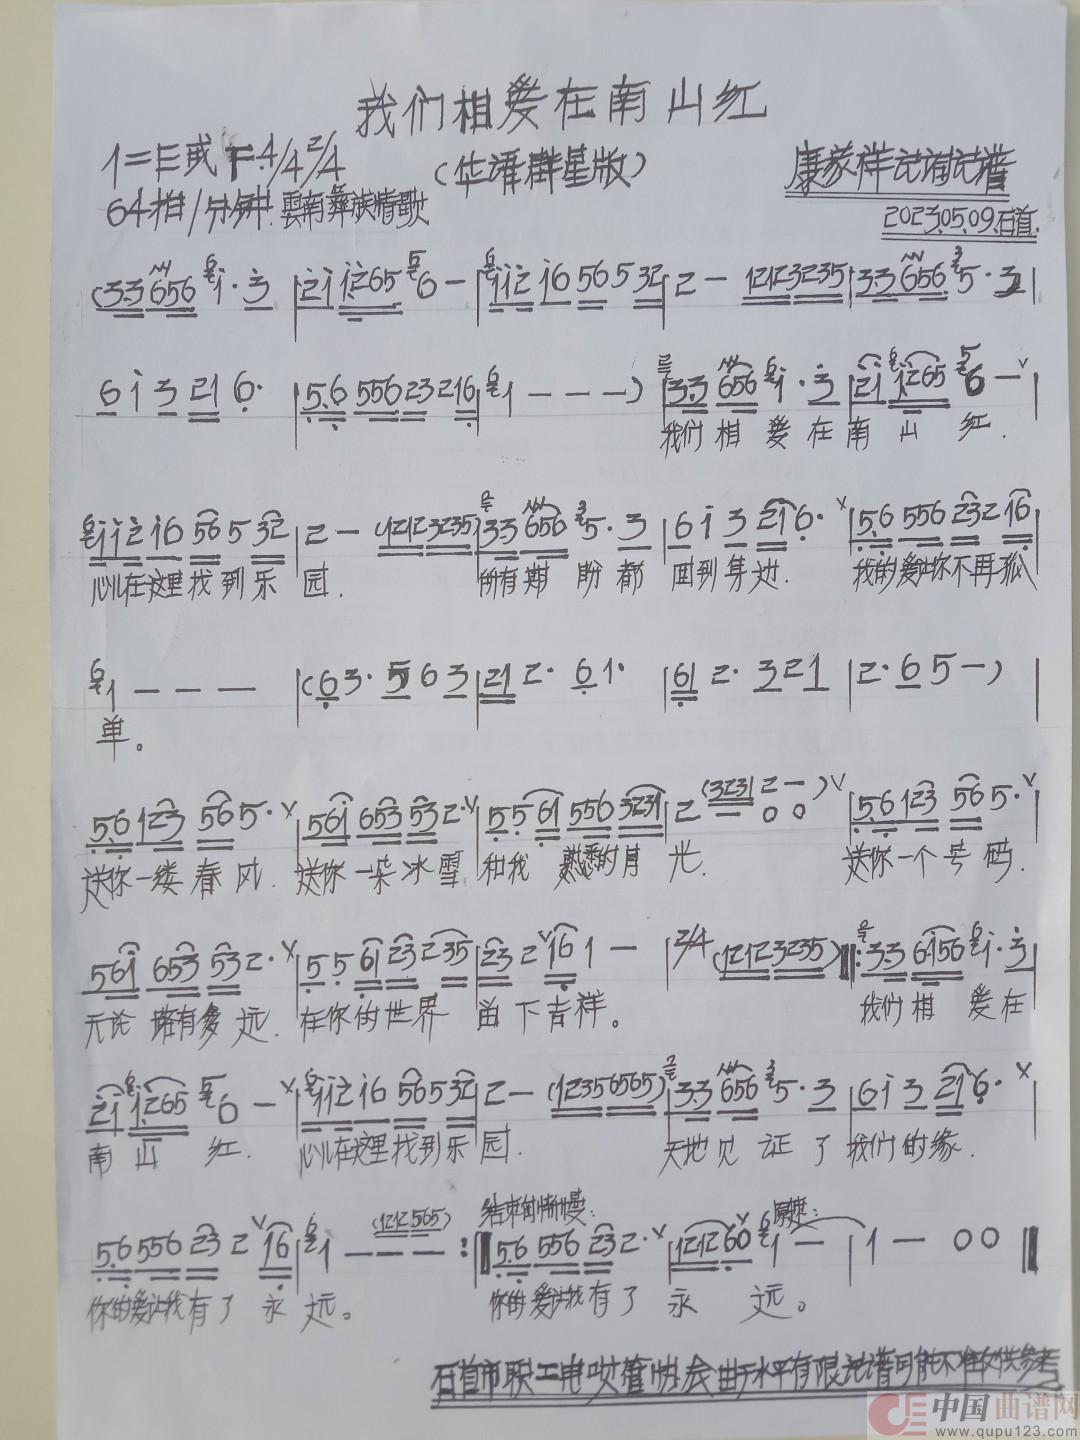 我们相爱在南山红
1=E或F 4/4 2/4
(华语群星版)
康家祥记词记谱
64拍/分钟.雲南彝族情歌
2023.05.09.石首.
(3.3 656 i·3 | 2i i265 6 - | ii2 i6 56 5 32 | 2 - 12123235 | 3.3 656 5·3 |
6 i 3 21 6· | 5.6 556 23 216 | 1 - - - ) | 3.3 656 i·3 | 2i i265 6 - ∨ |
我们相爱在南山红.
ii2 i6 56 5 32 | 2 - (12123235) | 3.3 656 5·3 | 6 i 3 21 6· ∨ | 5.6 556 23 2 16 |
心儿在这里找到乐园. 所有期盼都回到身边. 我的爱让你不再孤
1 - - - | (6 3· 5 6 3 | 21 2· 6 1· | 61 2· 3 21 | 2· 6 5 - ) |
单。
5.6 123 56 5· ∨ | 561 653 53 2· ∨ | 5 5 61 556 3231 | 2 (3231 2 - ) ∨ | 5.6 123 56 5· ∨ |
0 0
送你一缕春风. 送你一朵冰雪和我熟悉的月光. 送你一个号码.
561 653 53 2· ∨ | 5 5 61 23 235 | 23 2 ∨ 16 1 - | 2/4 (12123235) ‖: 3.3 6i56 i·3 |
无论拥有多远. 在你的世界留下吉祥。 我们相爱在
2i i265 6 - ∨ | ii2 i6 56 5 32 | 2 - (12356565) | 3.3 656 5·3 | 6i 3 21 6· ∨ |
南山红. 心儿在这里找到乐园. 天地见证了我们的缘.
结束句渐慢: 原速:
5.6 556 23 2 ∨ 16 | 1 - - - (1212 565) :‖ 5.6 556 23 2· ∨ | 121260 ∨ 1 - | 1 - 0 0 ‖
你的爱让我有了永远。 你的爱让我有了永远。
石首市职工电吹管协会由于水平有限记谱可能不准仅供参考
中国曲谱网
www.qupu123.com